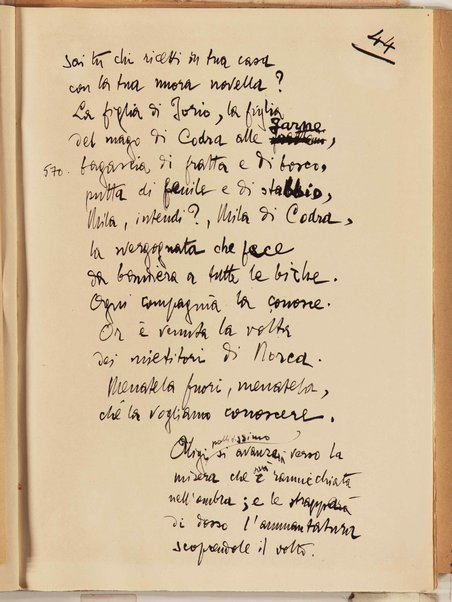 44
sai tu chi ricetti in tua casa
con la tua nuora novella?
La figlia di Jorio, la figlia
del mago di Codra alle Farne,
570. bagascia di fratta e di bosco,
putta di fenile e di stabbio,
Mila, intendi?, Mila di Codra,
la svergognata che fece
da bandiera a tutte le biche.
Ogni compagnia la conosce.
Or è venuta la volta
dei mietitori di Norca.
Menatela fuori, menatela,
ché la vogliamo conoscere.
pallidissimo
Aligi si avanza verso la
misera che sta rannicchiata
nell'ombra; e le strappa
di dosso l'ammantatura
scoprendole il volto.